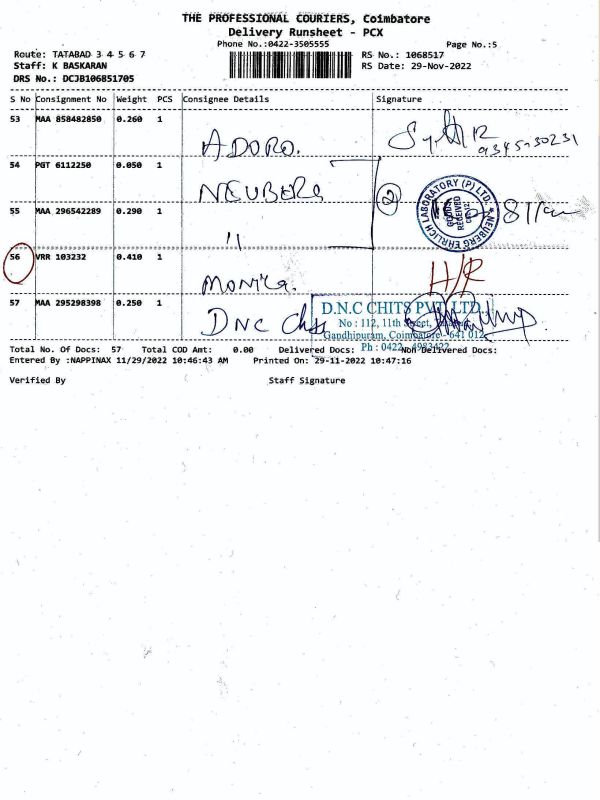 THE PROFESSIONAL COURIERS, Coimbatore
Delivery Runsheet - PCX
Phone No.:0422-3505555
Page No.:5
Route: TATABAD 3 4 5 6 7
RS No.: 1068517
Staff: K BASKARAN
RS Date: 29-Nov-2022
DRS No.: DCJB106851705
S No Consignment No Weight PCS Consignee Details Signature
53 MAA 858482850 0.260 1
ADORO.
54 PGT 6112250 0.050 1
NEUBERG
2
LABORATORY (P) LTD. * NEUBERG EHRLICH
GOODS
RECEIVED
55 MAA 296542289 0.290 1
"
56 VRR 103232 0.410 1
H/R
Monika.
57 MAA 295298398 0.250 1
DNC Chits
D.N.C CHITS PVT LTD.,
No : 112, 11th Street,
Gandhipuram, Coimbatore - 641 012.
Ph : 0422 - 4983422
Total No. Of Docs: 57 Total COD Amt: 0.00 Delivered Docs: Non-Delivered Docs:
Entered By :NAPPINAX 11/29/2022 10:46:43 AM Printed On: 29-11-2022 10:47:16
Verified By Staff Signature